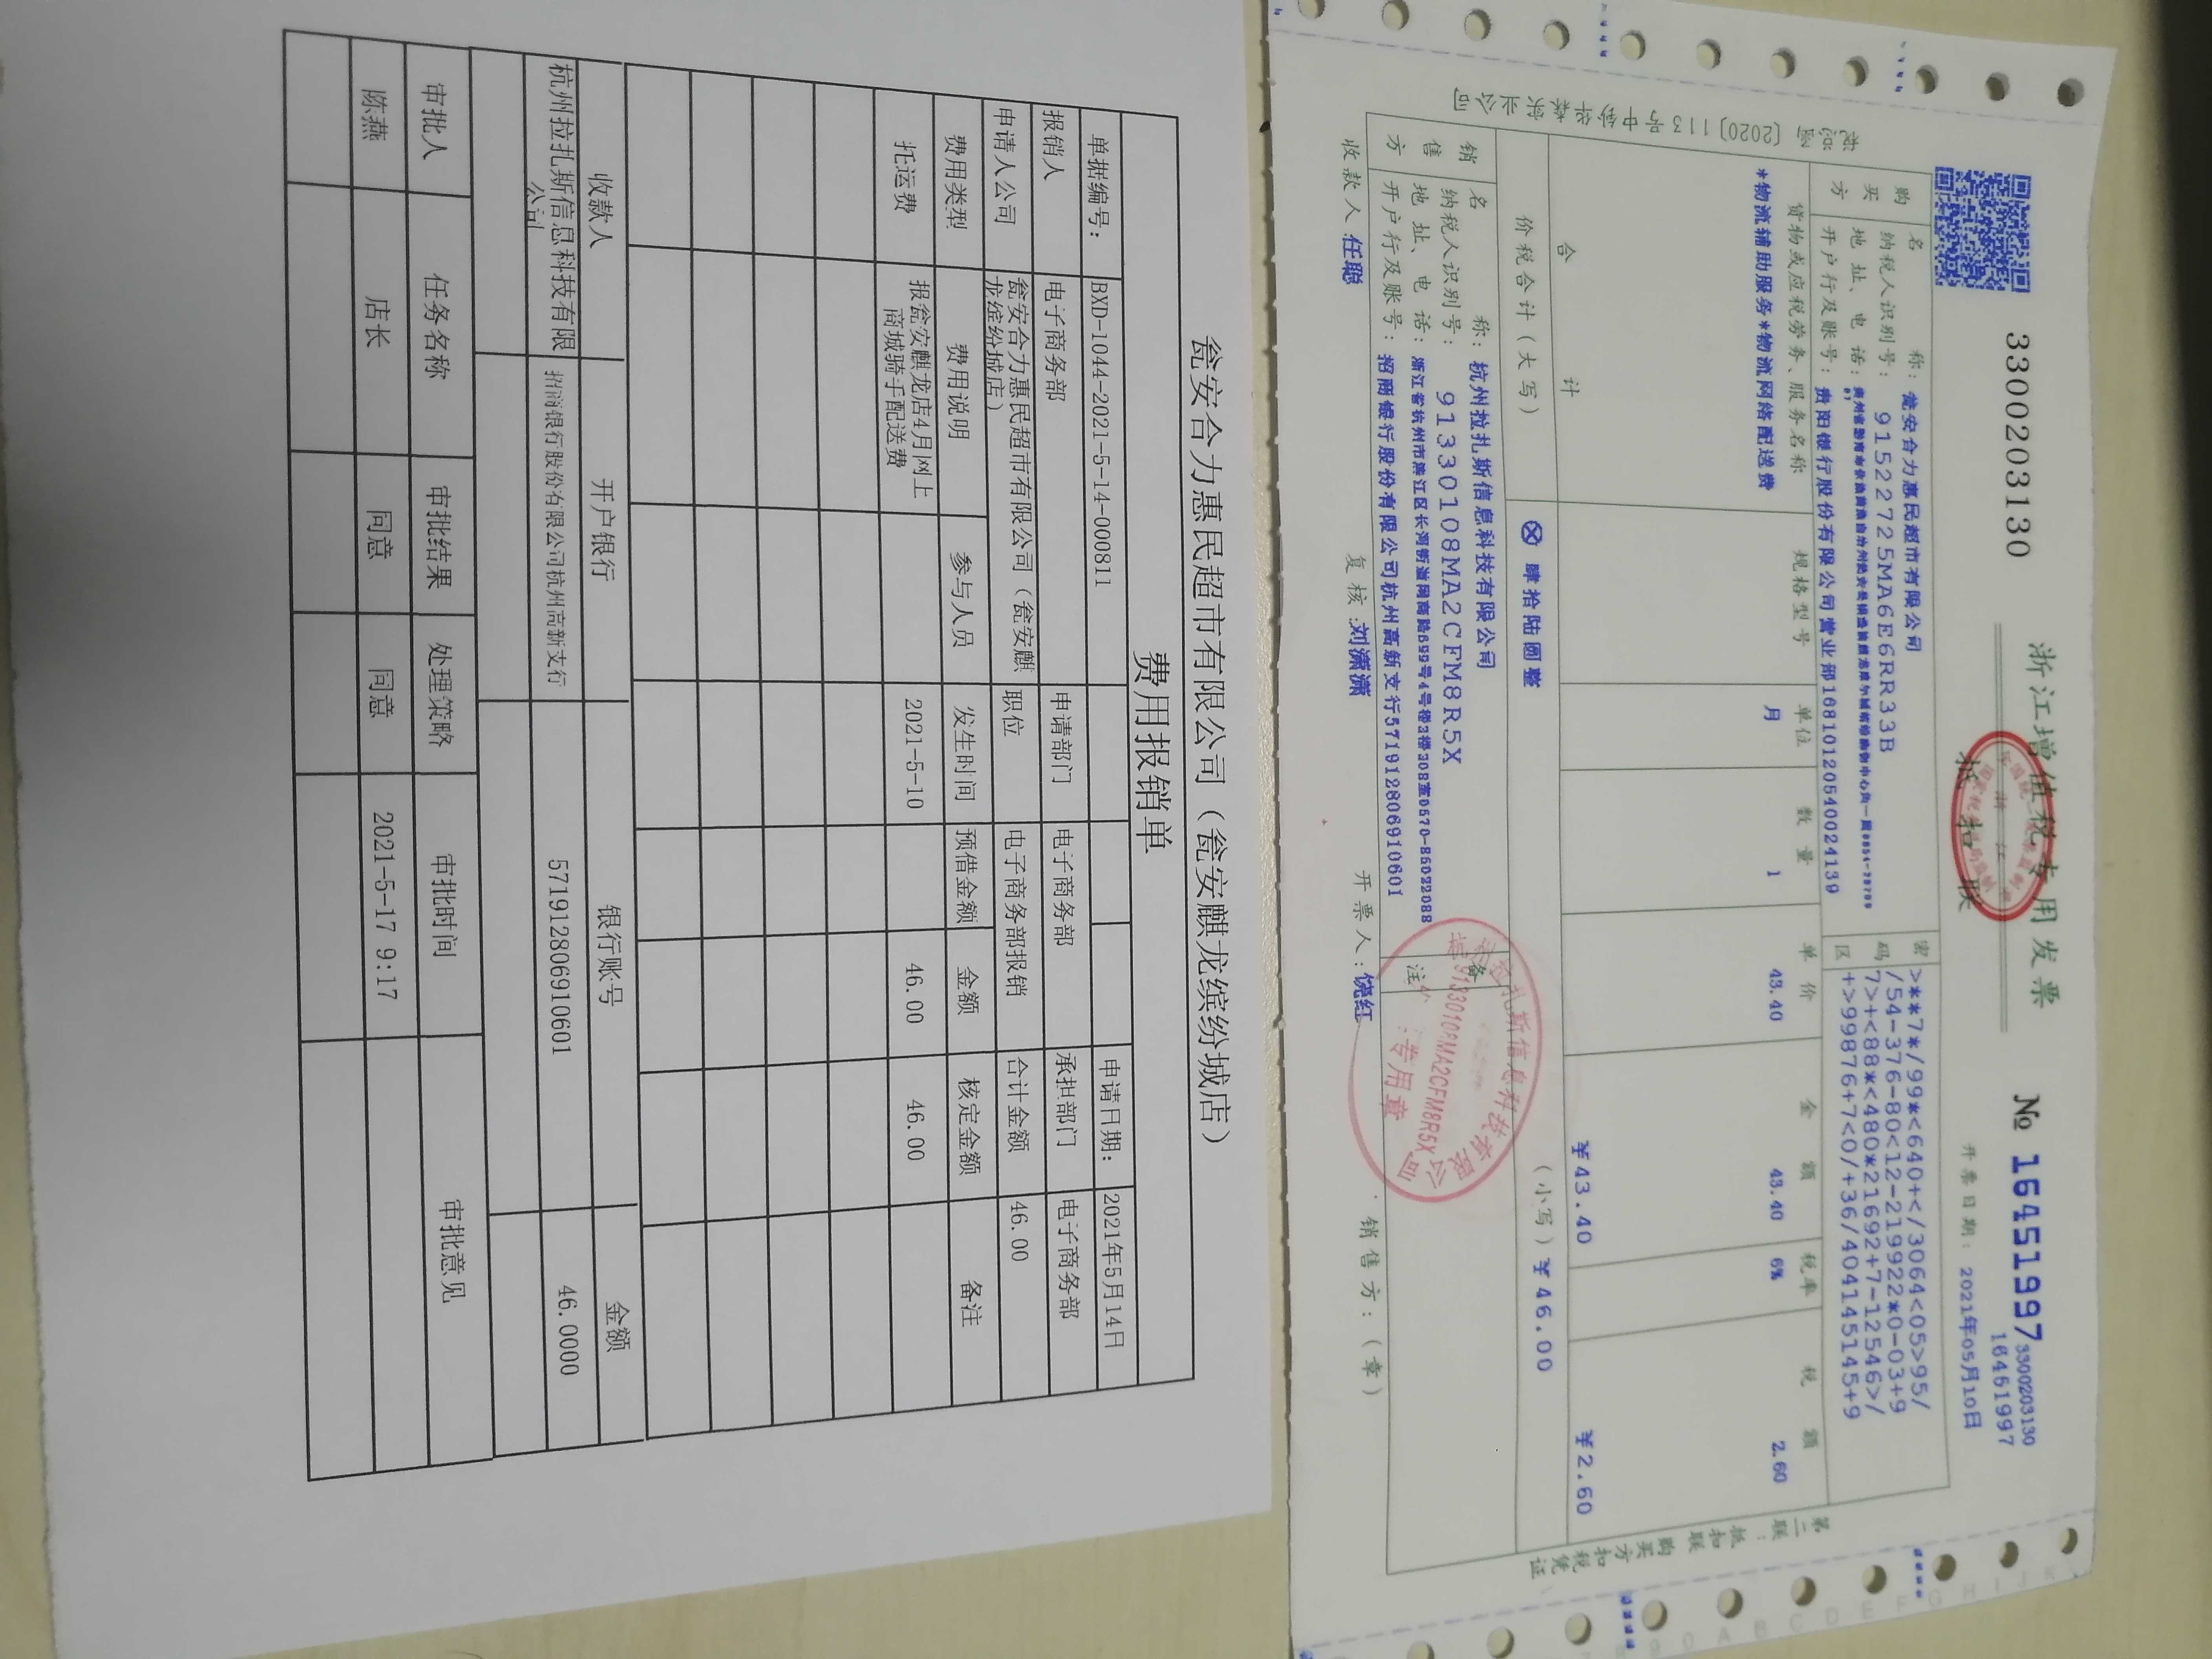 3300203130
浙江增值税专用发票
抵扣联
№ 16451997
3300203130
16451997
开票日期：2021年05月10日
购买方
名称：瓮安合力惠民超市有限公司
纳税人识别号：91522725MA6E6RR33B
地址、电话：
开户行及账号：贵阳银行股份有限公司营业部16810120540024139
密码区
>**7*/99*<640+</3064<05>95/
/54-376-80<12-219922*0-03+9
7>+<88*<480*21692+7-12546>/
+>99876+7<0/+36/404145145+9
货物或应税劳务、服务名称 规格型号 单位 数量 单价 金额 税率 税额
*物流辅助服务*物流网络配送费 月 1 43.40 43.40 6% 2.60
合计 ¥43.40 ¥2.60
价税合计（大写） ⊗肆拾陆圆整 （小写）¥46.00
销售方
名称：杭州拉扎斯信息科技有限公司
纳税人识别号：91330108MA2CFM8R5X
地址、电话：浙江省杭州市滨江区长河街道网商路699号4号楼3楼308室0570-85022088
开户行及账号：招商银行股份有限公司杭州高新支行571912806910601
备注
收款人：任聪 复核：刘潇潇 开票人：饶红 销售方：（章）
91330108MA2CFM8R5X
专用章
第二联：抵扣联 购买方扣税凭证
瓮安合力惠民超市有限公司（瓮安麒龙缤纷城店）
费用报销单
单据编号： BXD-1044-2021-5-14-000811 申请日期： 2021年5月14日
报销人 电子商务部 申请部门 电子商务部 承担部门 电子商务部
申请人公司 瓮安合力惠民超市有限公司（瓮安麒龙缤纷城店） 职位 电子商务部报销 合计金额 46.00
费用类型 费用说明 参与人员 发生时间 预借金额 金额 核定金额 备注
托运费 报瓮安麒龙店4月网上商城骑手配送费 2021-5-10 46.00 46.00
收款人 开户银行 银行账号 金额
杭州拉扎斯信息科技有限公司 招商银行股份有限公司杭州高新支行 571912806910601 46.0000
审批人 任务名称 审批结果 处理策略 审批时间 审批意见
陈燕 店长 同意 同意 2021-5-17 9:17